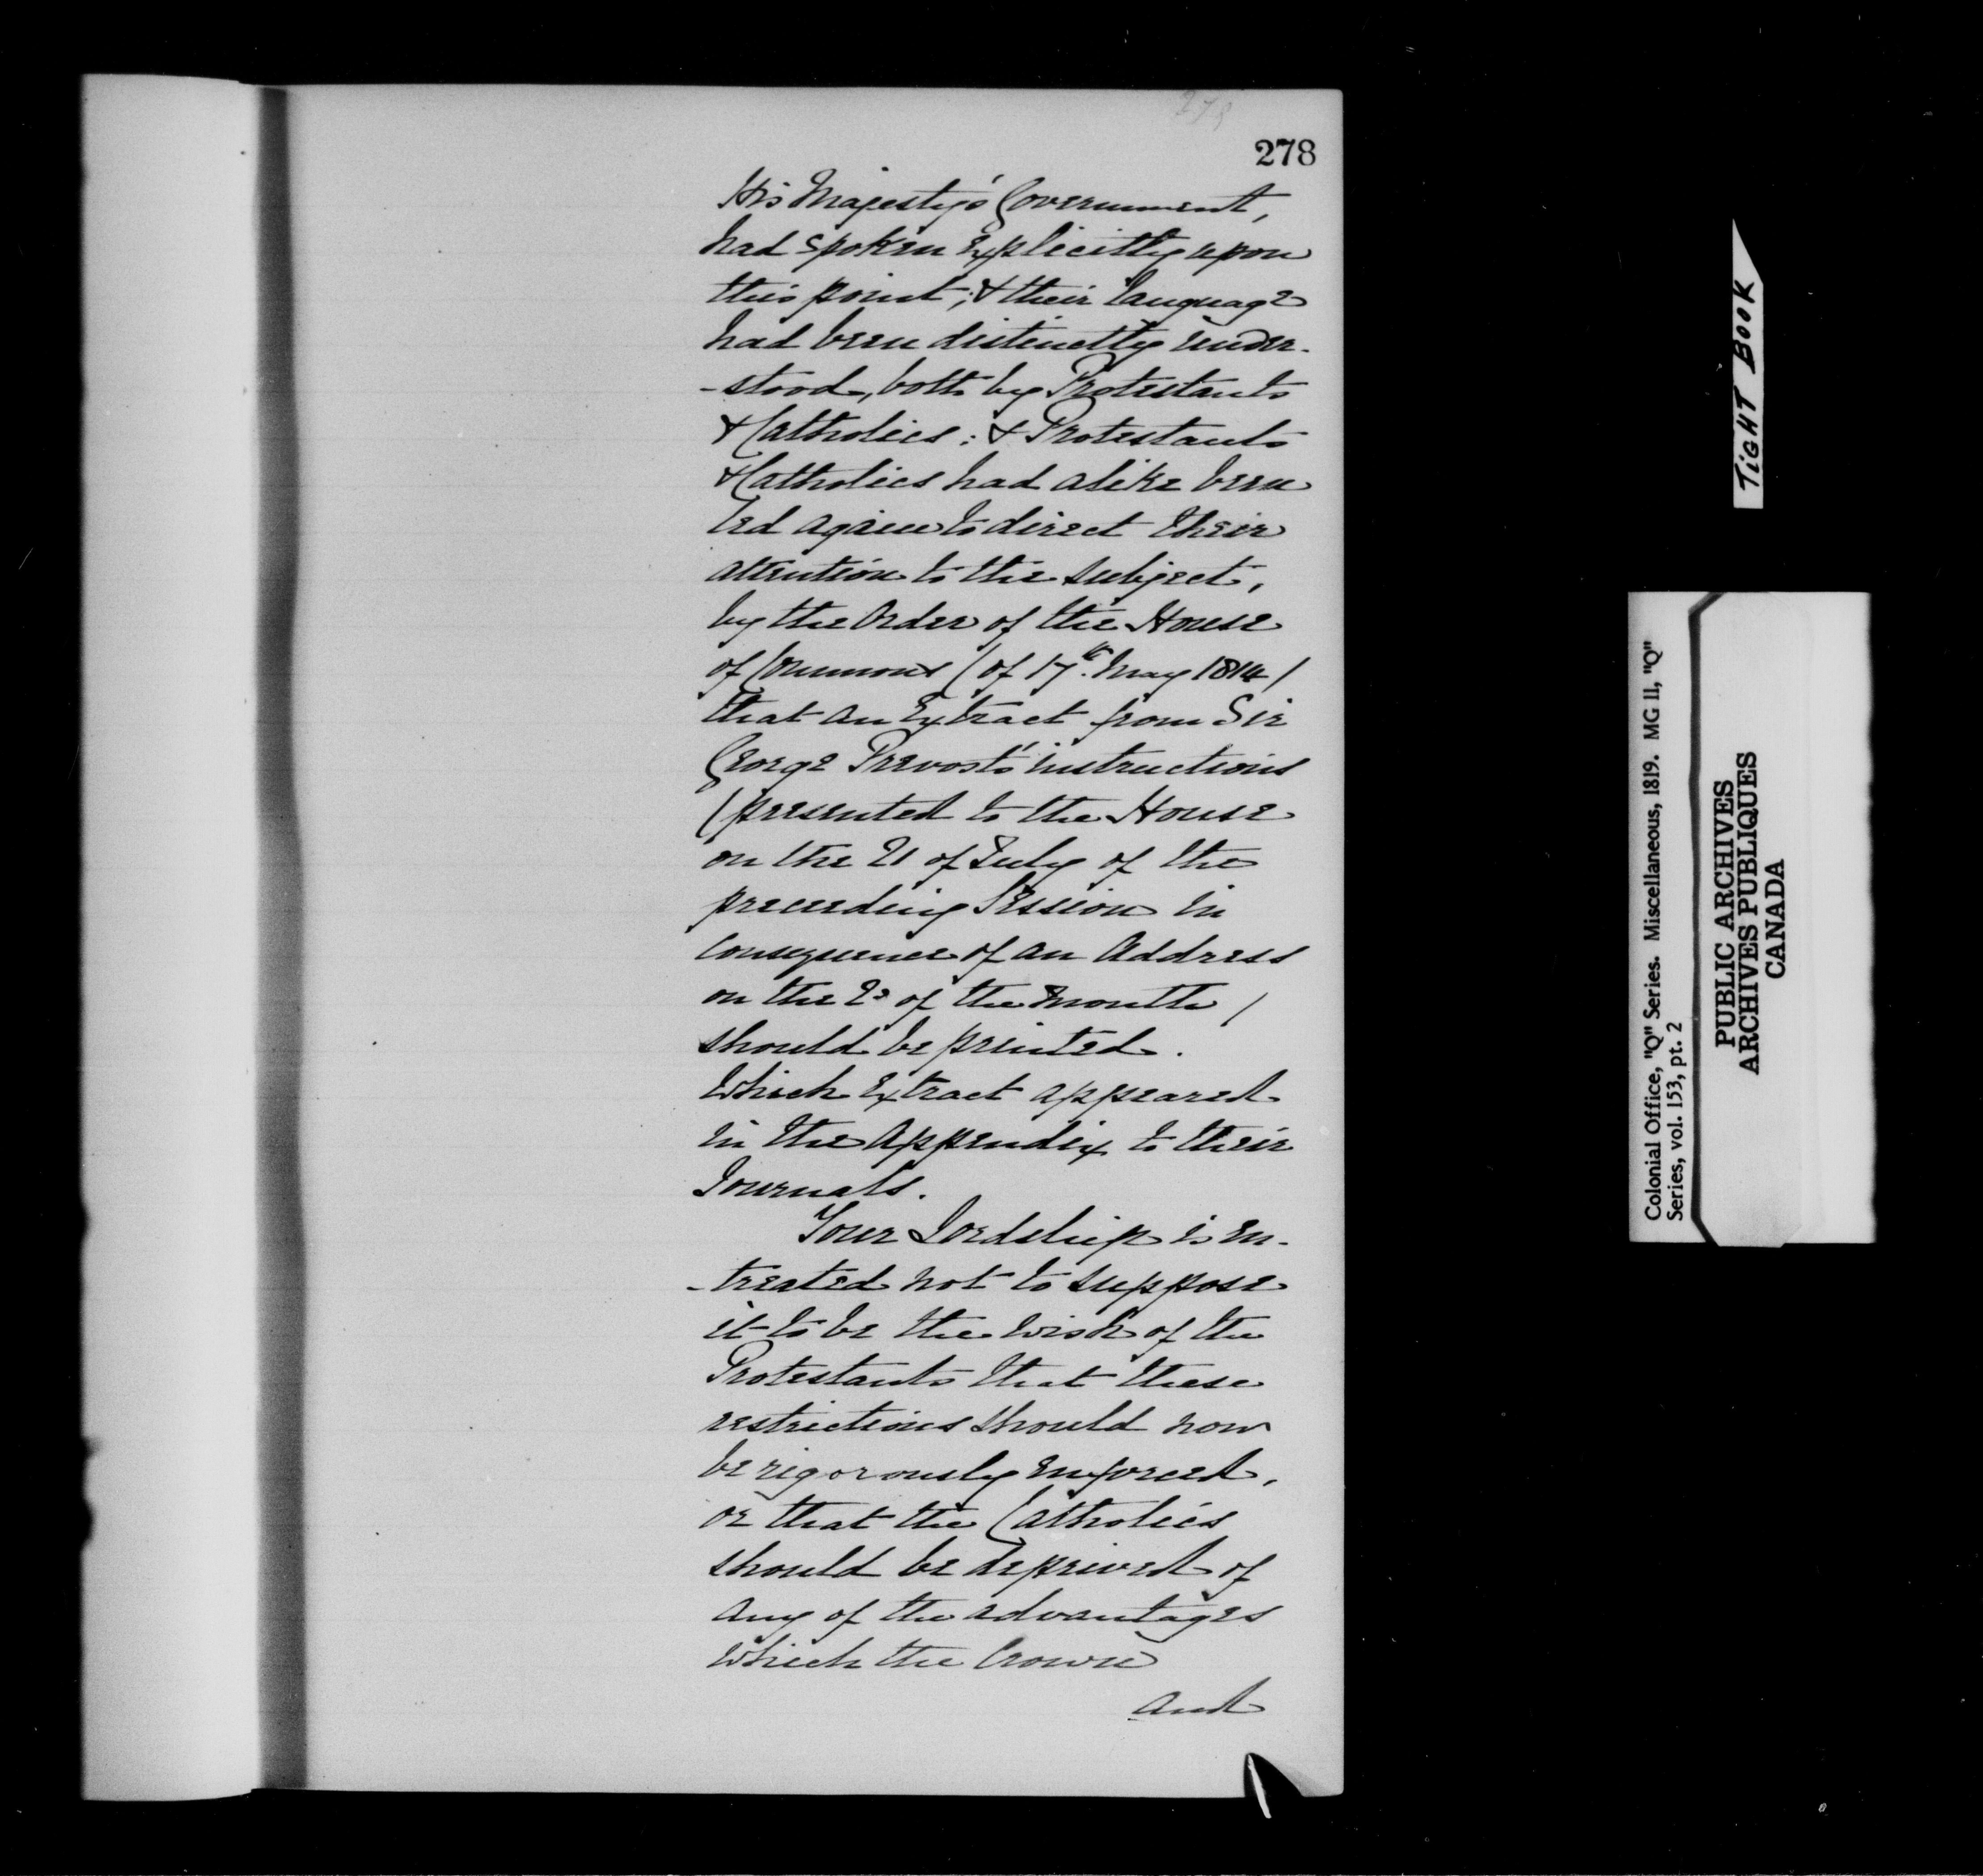 278
278
His Majesty's Government,
had spoken explicitly upon
this point; & their language
had been distinctly under-
-stood, both by Protestants
& Catholics: & Protestants
& Catholics had alike been
led again to direct their
attention to the subject,
by the Order of the House
of Commons (of 17th. May 1814/
that an Extract from Sir
George Prevost's instructions
(presented to the House
on the 21 of July of the
preceeding Session in
consequence of an Address
on the 2d of the month /
should be printed.
Which extract appeared
in the Appendix to their
Journals.
Your Lordship is en-
-treated not to suppose
it to be the wish of the
Protestants that these
restrictions should now
be rigorously enforced,
or that the Catholics
should be deprived of
any of the advantages
which the Crown
and
TIGHT BOOK
Colonial Office, "Q" Series. Miscellaneous, 1819. MG 11, "Q"
Series, vol. 153, pt. 2
PUBLIC ARCHIVES
ARCHIVES PUBLIQUES
CANADA